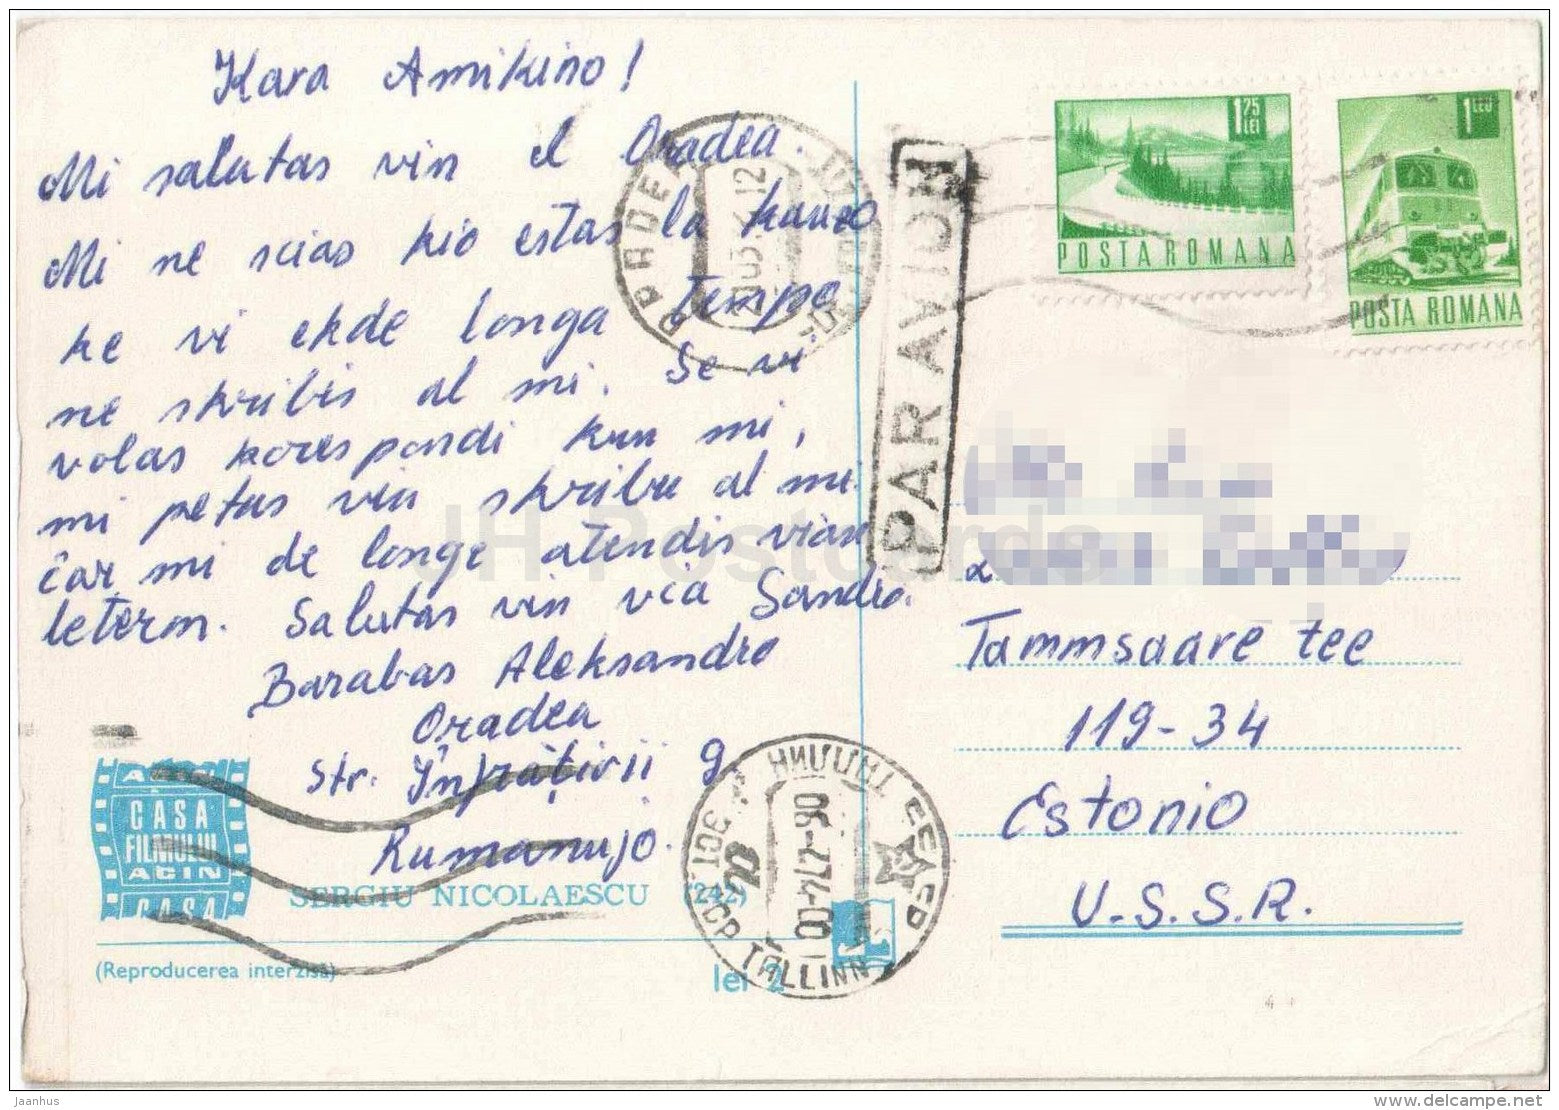 Kara Amikino!
Mi salutas vin el Oradea.
Mi ne scias kio estas la kauzo
ke vi ekde longa tempo
ne skribis al mi. Se vi
volas korespondi kun mi,
mi petas vin skribu al mi
ĉar mi de longe atendis vian
leteron. Salutas vin via Sandro.
Barabas Aleksandro
Oradea
Str. Înfrăţirii 9
Rumanujo.
CASA
FILMULUI
ACIN
CASA
SERGIU NICOLAESCU (242)
(Reproducerea interzisă)
lei 2
1 25 LEI
POSTA ROMANA
1 LEU
POSTA ROMANA
PAR AVION
ORADEA
TALLINN
Tammsaare tee
119-34
Estonio
U.S.S.R.
JH Postcards
Jaanhus
delcampe.net